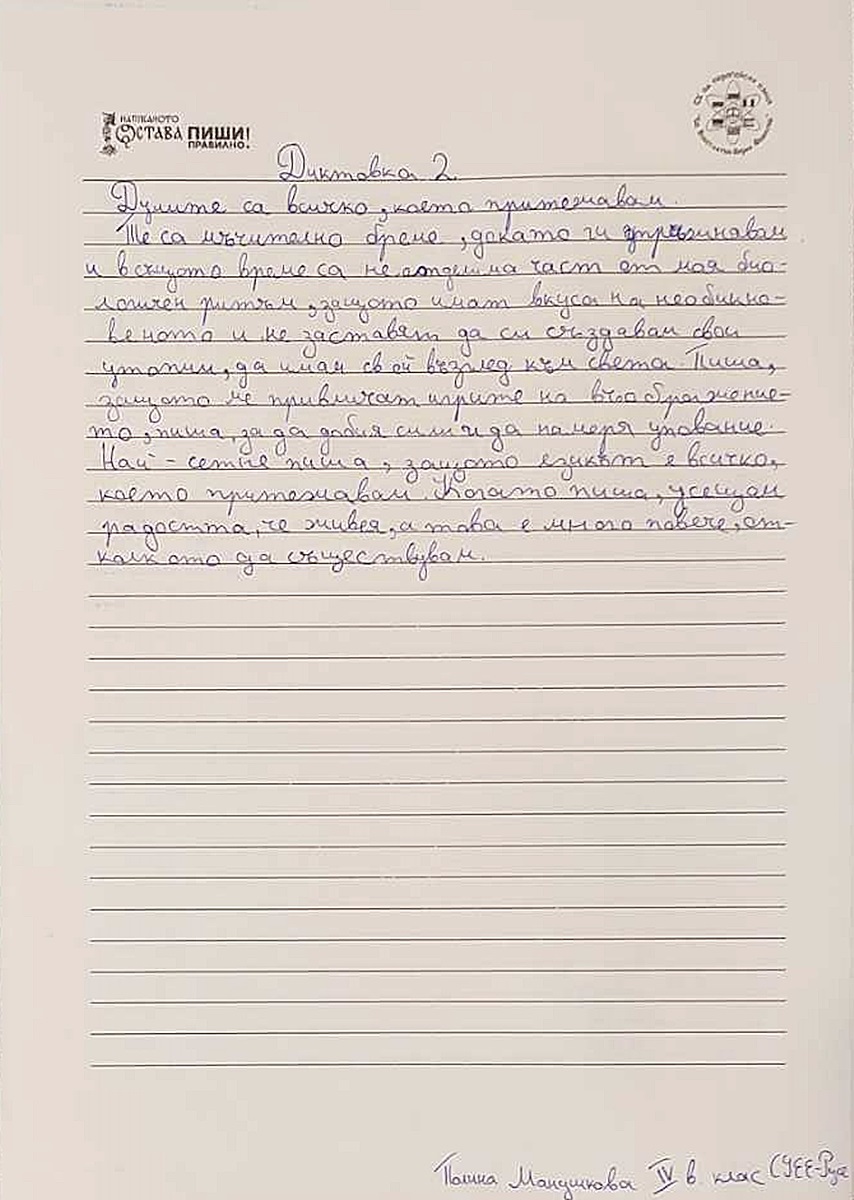 НАПИСАНОТО
ОСТАВА ПИШИ!
ПРАВИЛНО.
Диктовка 2.
Думите са всичко, което притежавам.
Те са мъчително бреме, докато ги
и в същото време са неотделима част от моя био-
логичен ритъм, защото имат вкуса на необикно-
веното и ме заставят да си създавам свои
утопии, да имам свой възглед към света. Пиша,
защото ме привличат игрите на въображение-
то, пиша, за да добия сили и да намеря упование.
Най-сетне пиша, защото езикът е всичко,
което притежавам. Когато пиша, усещам
радостта, че живея, а това е много повече, от-
колкото да съществувам.
Полина IV в клас